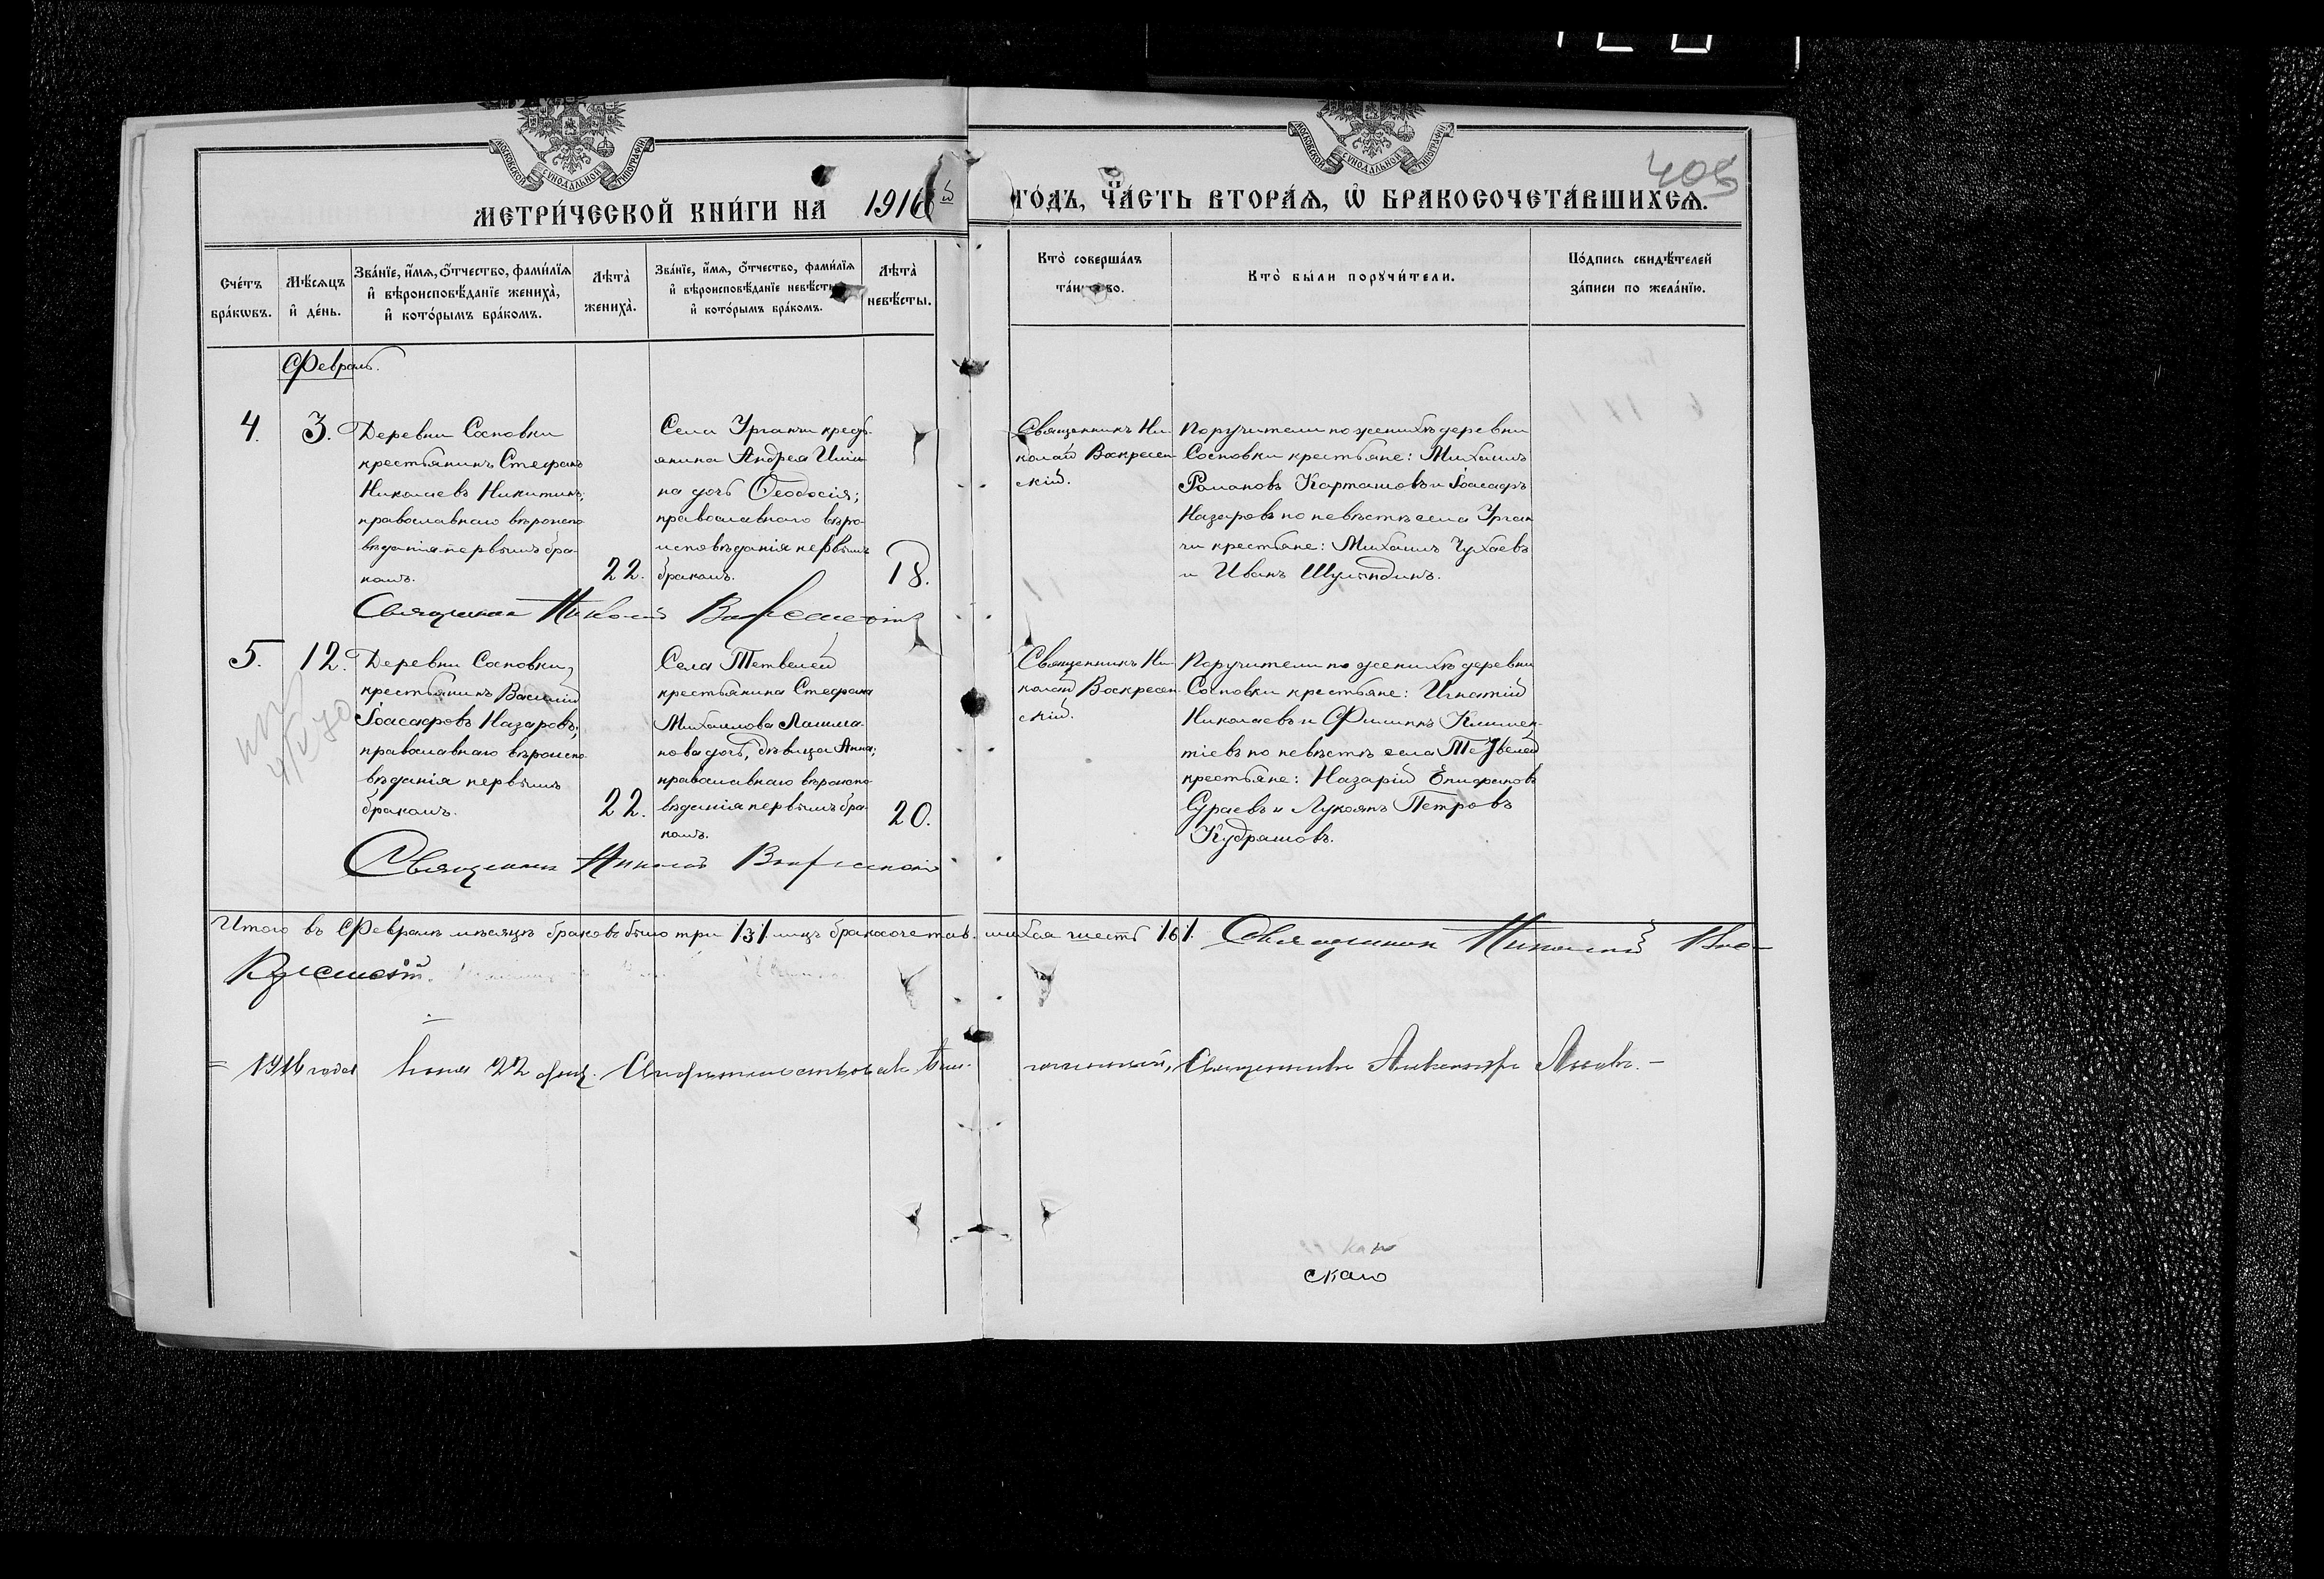 МОСКОВСКОЙ СѴНОДАЛЬНОЙ ТИПОГРАФІИ
МОСКОВСКОЙ СѴНОДАЛЬНОЙ ТИПОГРАФІИ
МЕТРИ́ЧЕСКОЙ КНИ́ГИ НА 1916 ГО́ДЪ, ЧА́СТЬ ВТОРА́Я, Ѡ҆ БРАКОСОЧЕТА́ВШИХСЯ.
Сче́тъ бра́кѡвъ.
Мѣ́сяцъ и҆ де́нь.
Зва́нїе, и҆́мя, ѻ҆́тчество, фами́лїя
и҆ вѣроисповѣ́данїе жениха̀,
и҆ кото́рымъ бра́комъ.
Лѣта̀ жениха̀.
Зва́нїе, и҆́мя, ѻ҆́тчество, фами́лїя
и҆ вѣроисповѣ́данїе невѣ́сты
и҆ кото́рымъ бра́комъ.
Лѣта̀ невѣ́сты.
Кто̀ соверша́лъ
та́инство.
Кто̀ бы́ли порꙋчи́тели.
По́дпись свидѣ́телей
за́писи по жела́нїю.
Февраль.
4.
3.
Деревни Сосновки
крестьянинъ Стефанъ
Николаевъ Никитинъ;
православнаго вѣроиспо-
вѣданія первымъ бра-
комъ.
22.
Села Урганчи кресть-
янина Андрея
на дочь Ѳеодосія;
православнаго вѣро-
исповѣданія первымъ
бракомъ.
18.
Священникъ Ни-
колай Воскресен-
скій.
Поручители по женихѣ деревни
Сосновки крестьяне: Михаилъ
Романовъ Карташовъ и Іоасафъ
Назаровъ по невѣстѣ села Урган-
чи крестьяне: Михаилъ Чухаевъ
и Иванъ Шуляндинъ.
Священникъ Николай Воскресенскій
5.
12.
Деревни Сосновки,
крестьянинъ Василій
Іоасафовъ Назаровъ;
православнаго вѣроиспо-
вѣданія первымъ
бракомъ.
22.
Села Тетвелей
крестьянина Стефана
Михаилова Лашма-
нова дочь, дѣвица Анна;
православнаго вѣроиспо-
вѣданія первымъ бра-
комъ.
20.
Священникъ Ни-
колай Воскресен-
скій.
Поручители по женихѣ деревни
Сосновки крестьяне: Игнатій
Николаевъ и Филиппъ Климен-
тіевъ по невѣстѣ села Тетвелей
крестьяне: Назарій Епифановъ
Сураевъ и Лукоянъ Петровъ
Кудряшовъ.
Священникъ Николай Воскресенскій
Итого въ Февралѣ мѣсяцѣ браковъ было три /3/ лицъ бракосочетав-шихся шесть /6/. Священникъ Николай Вос-
кресенскій.
1916 года 22 дня. Свидѣтельствовалъ Благочинный, Священникъ Александръ
скаго